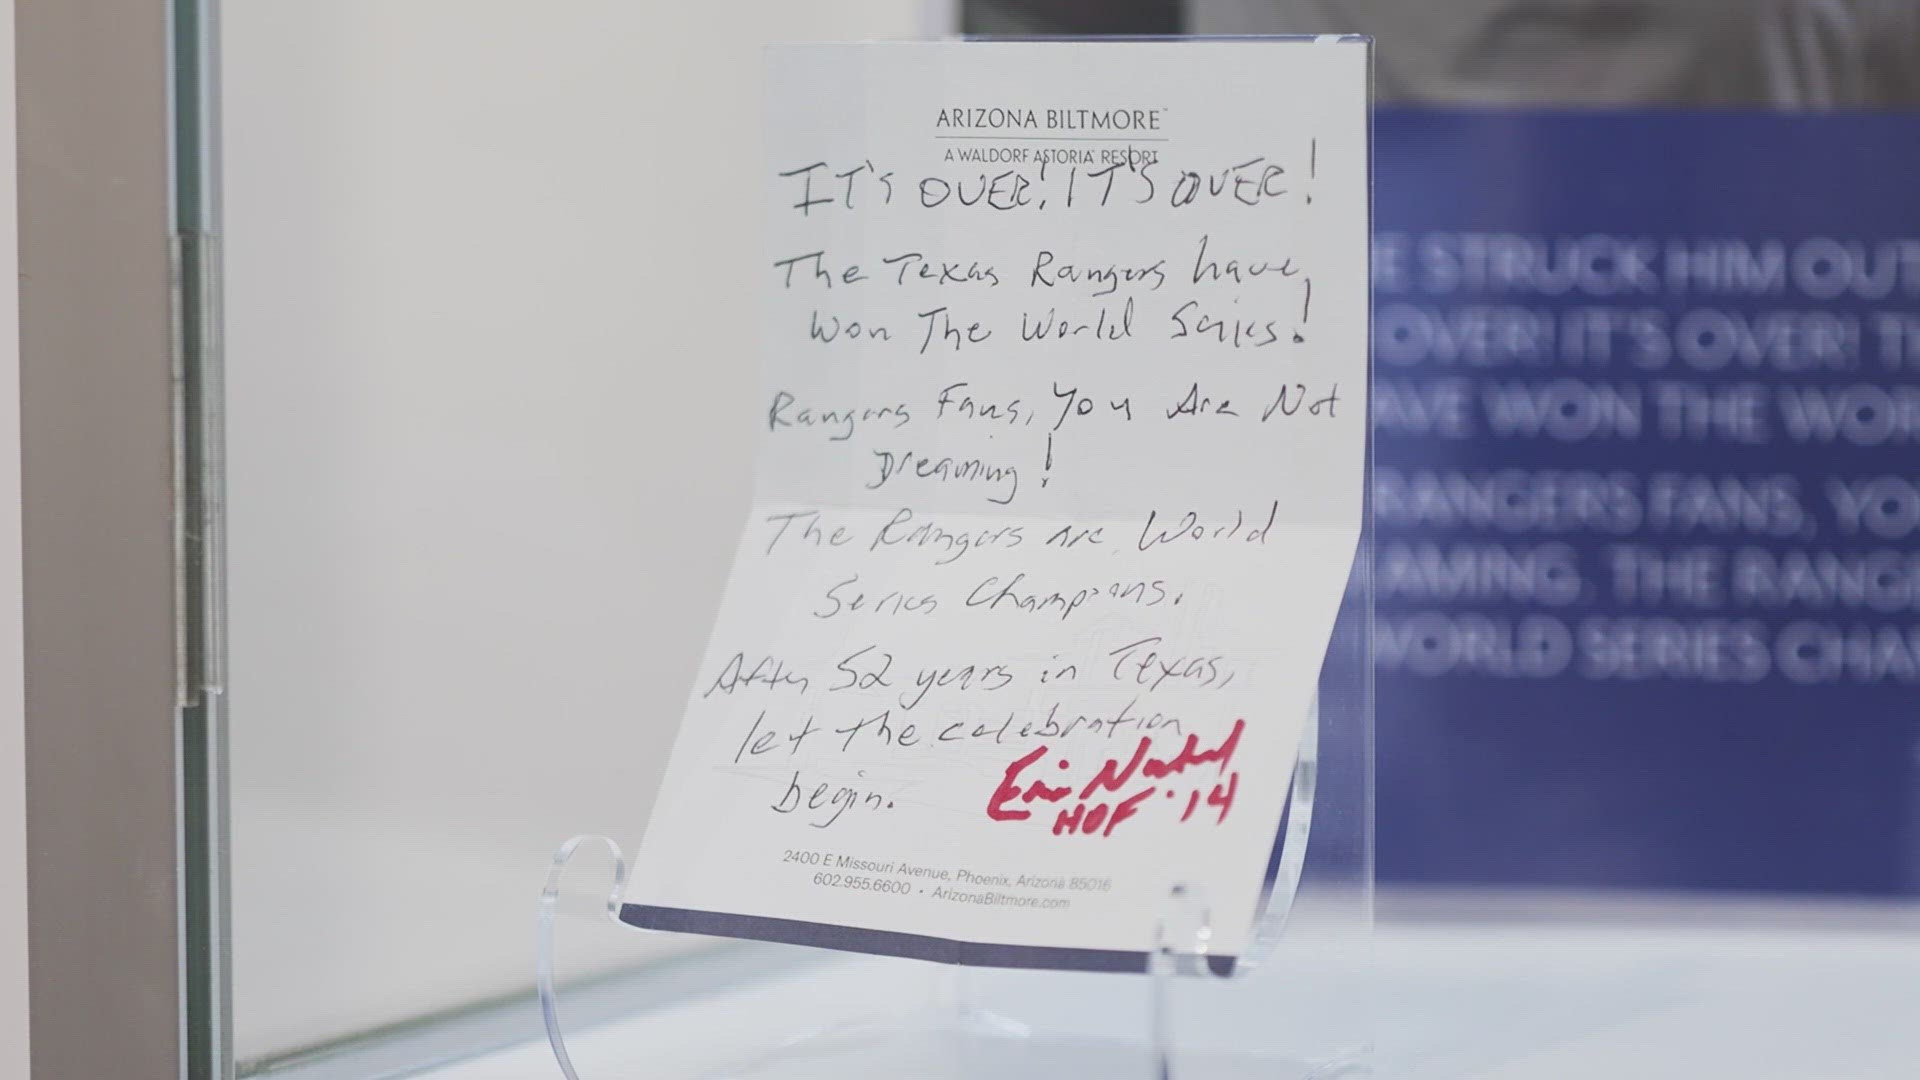 ARIZONA BILTMORE™
A WALDORF ASTORIA® RESORT
IT'S OVER! IT'S OVER!
The Texas Rangers have
Won The World Series!
Rangers Fans, You Are Not
Dreaming!
The Rangers are World
Series Champions.
After 52 years in Texas,
let the celebration
begin.
Eric Nadel
HOF '14
2400 E Missouri Avenue, Phoenix, Arizona 85016
602.955.6600 • ArizonaBiltmore.com
E STRUCK HIM OUT
OVER! IT'S OVER! T
AVE WON THE WOR
RANGERS FANS, YO
AMING. THE RANG
WORLD SERIES CHA